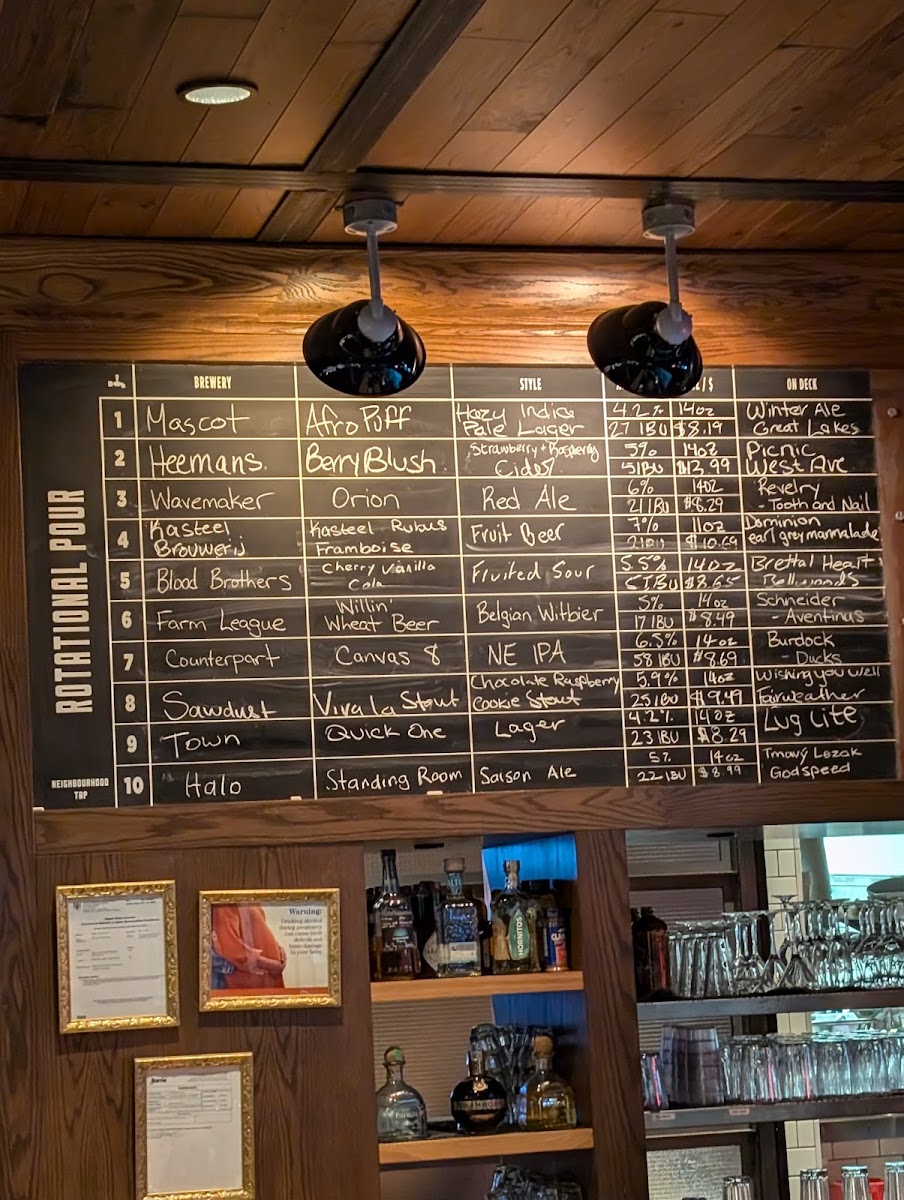 BREWERY STYLE / $ ON DECK
ROTATIONAL POUR
NEIGHBOURHOOD
TAP
1 Mascot Afro Puff Hazy India 4.2% 14oz Winter Ale
Pale Lager 27 IBU $8.19 Great Lakes
2 Heemans. Berry Blush. Strawberry + Raspberry 5% 14oz Picnic
Cider 5IBU $13.99 West Ave
3 Wavemaker Orion Red Ale 6% 14oz Revelry
21 IBU $8.29 - Tooth and Nail
4 Kasteel Kasteel Rubus Fruit Beer 7% 11oz Dominion
Brouwerij Framboise $10.69 earl grey marmalade
5 Blood Brothers Cherry Vanilla Fruited Sour 5.5% 14oz Brettal Heart
Cola 5IBU $8.65 Bellwoods
6 Farm League Willin' Belgian Witbier 5% 14oz Schneider
Wheat Beer 17 IBU $8.49 - Aventinus
7 Counterpart Canvas 8 NE IPA 6.5% 14oz Burdock
58 IBU $8.69 - Ducks
8 Sawdust Viva la Stout Chocolate Raspberry 5.9% 14oz Wishing you well
Cookie Stout 25 IBU $9.49 Fairweather
9 Town Quick One Lager 4.2% 14oz Lug Lite
23 IBU $8.29
10 Halo Standing Room Saison Ale 5% 14oz Tmavý Lezak
22 IBU $8.99 Godspeed
Warning:
Drinking alcohol
during pregnancy
can cause birth
defects and
brain damage
to your baby.
HORNITOS
Barrie